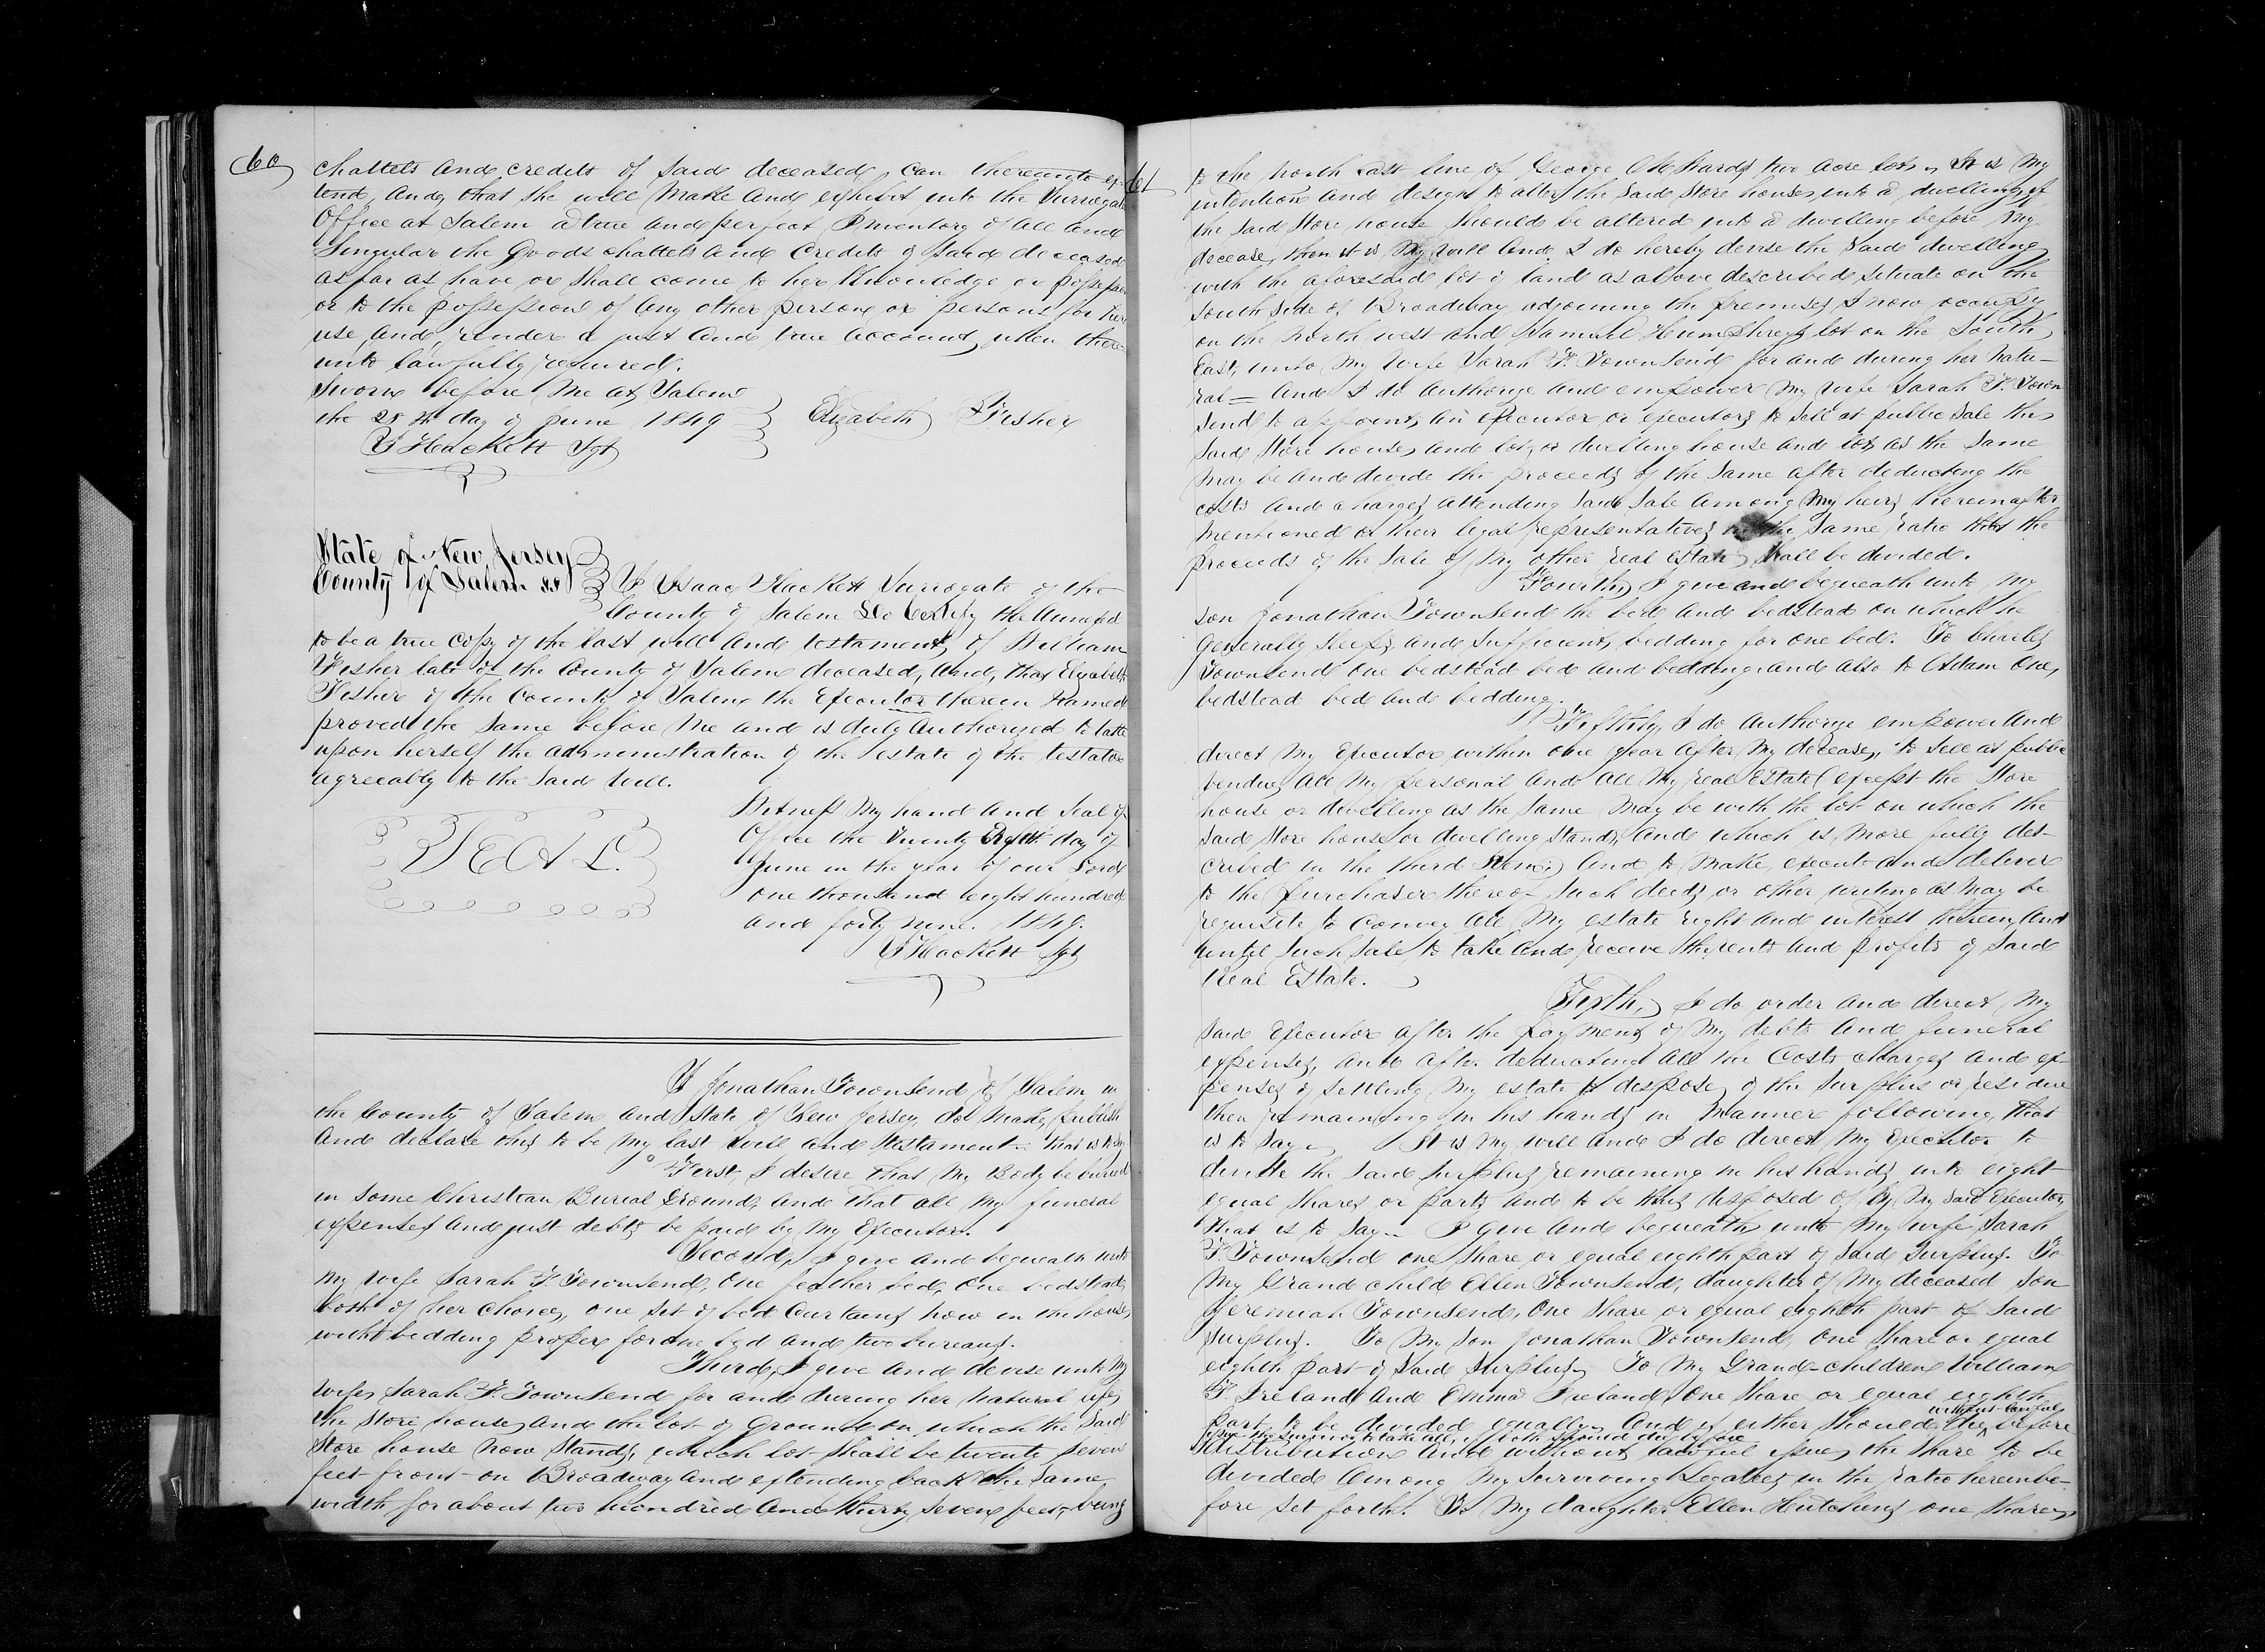 60
chattels and credits of said deceased, can thereunto ex-
tend and, that she will make and exhibit into the Surrogate
Office at Salem a true and perfect Inventory of all and
Singular the Goods chattels and Credits of said deceased
as far as have or shall come to her Knowledge or possession
or to the possession of any other person or persons for her
use and, render a just and true account, when there-
unto lawfully required.
Sworn before me at Salem
the 28th day of June 1849 Elizabeth Fisher
I Hackett Sgt
State of New Jersey
County of Salem ss I Isaac Hackett Surrogate of the
County of Salem Do Certify the Annexed
to be a true copy of the last will and testament, of William
Fisher late of the County of Salem deceased, and, that Elizabeth
Fisher of the County of Salem the Executor therein Named
proved the same before me and is duly Authorized to take
upon herself the administration of the estate of the testator
agreeably to the said Will.
Witness My hand and Seal of
Office the Twenty Eighth day of
June in the year of our Lord
one thousand eight hundred
and forty nine. 1849.
I Hackett Sgt
SEAL.
I Jonathan Townsend of Salem in
the County of Salem and State of New Jersey, do Make, publish
and declare this to be my last will and testament - that is to say
First, I desire that My Body be buried
in some Christian Burial Ground, and that all My funeral
expenses and just debts be paid by My Executor.
Second, I give and bequeath unto
my wife Sarah F. Townsend, One feather bed, One bedstead,
both of her choice, one set of bed Curtains now in the house,
with bedding proper for one bed and two bureaus.
Third, I give and devise unto My
wife, Sarah F. Townsend for and during her natural life,
the store house, and the lot of ground on which the said
Store house now stands, which lot shall be twenty seven
feet front on Broadway and extending back the same
width for about two hundred and thirty seven feet, being
61
to the north east line of George M Wards two acre lot, It is My
intention and design to alter the said Store house, into a dwelling, if
the said Store house should be altered into a dwelling before My
decease, then it is My will and I do hereby devise the said dwelling
with the aforesaid lot of land as above described situate on the
South side of Broadway adjoining the premises I now occupy
on the North west and Samuel Humphreys lot on the South
East, unto My wife Sarah F. Townsend for and during her Natu-
ral = And I do authorize and empower My wife Sarah F. Town
send to appoint, an Executor or executors to sell at public sale the
said Store house, and lot, or dwelling house and lot, as the same
may be and divide the proceeds of the same after deducting the
costs and charges attending said Sale among My heirs hereinafter
mentioned or their legal representatives in the same ratio that the
proceeds of the Sale of My other real estate shall be divided.
Fourth, I give and bequeath unto My
son Jonathan Townsend the bed and bedstead on which he
generally sleeps and sufficient, bedding for one bed. To Charles
Townsend One bedstead bed and bedding, and also to Adam One,
bedstead bed and bedding.
Fifthly, I do authorize empower and
direct My Executor within one year after My decease, to sell at public
vendue, all My personal and all My real Estate (except the Store
house or dwelling as the same may be with the lot on which the
said Store house or dwelling stands, and which is more fully des-
cribed in the third Item;) and to make, execute and deliver
to the purchaser thereof such deeds or other writing as may be
requisite to convey all My estate right and interest therein, and
until such sale, to take and receive the rents and profits of said
Real Estate.
Sixth, I do order and direct My
said Executor after the payment, of My debts and funeral
expenses, and after deducting all the Costs charges and ex-
penses of settling My estate to dispose, of the surplus or residue
then remaining in his hands in Manner following, that
is to say, It is My will and I do direct My Executor to
divide the said surplus remaining in his hands into eight
equal shares or parts and to be thus disposed of by My said Executor,
that is to say - I give and bequeath unto My wife Sarah
F Townsend one share or equal eighth part of said Surplus. To
My Grand child Ellen Townsend, daughter of My deceased son
Jeremiah Townsend, One share or equal eighth part of said
surplus. To My son Jonathan Townsend, One share or equal
eighth part of said surplus, To My Grand-children William
F. Ireland and Emma Ireland, One share or equal eighth
part, to be divided equally, and if either should die, without lawful before
issue the survivor to take all, if both should die before
distribution and without, lawful issue, the share to be
divided among My surviving Legatees in the ratio hereinbe-
fore set forth. To My daughter Ellen Hutchins one share,